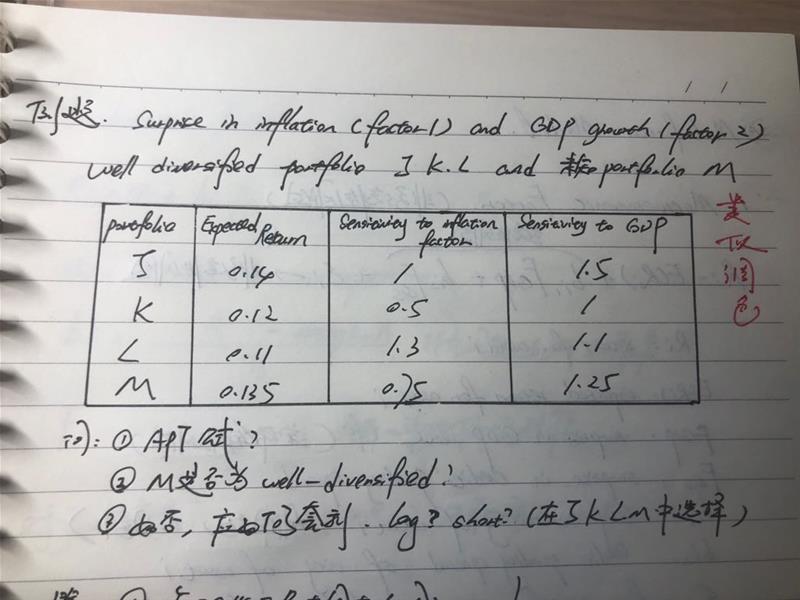 下列题. Surprise in inflation (factor 1) and GDP growth (factor 2)
well diversified portfolio J K.L and portfolio M
Portfolio Expected Return Sensitivity to inflation factor Sensitivity to GDP
J 0.14 1 1.5
K 0.12 0.5 1
L 0.11 1.3 1.1
M 0.135 0.75 1.25
类
似
润
色
问: ① APT 公式?
② M是否为 well-diversified?
③ 如否, 应如何套利. long? short? (在 J K L M 中选择)